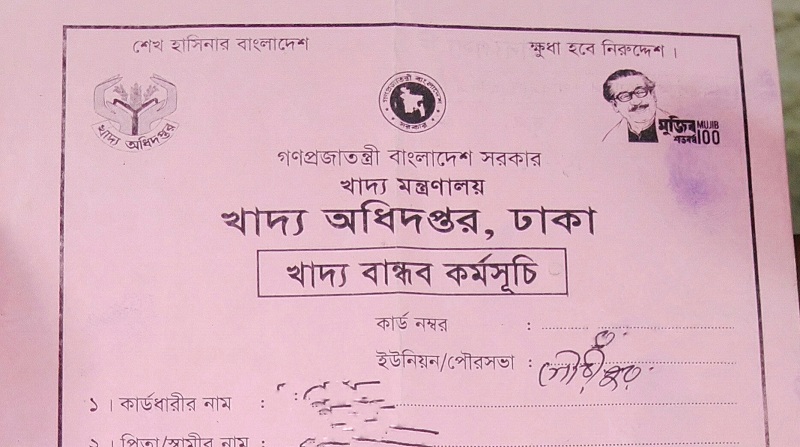 শেখ হাসিনার বাংলাদেশ
ক্ষুধা হবে নিরুদ্দেশ।
খাদ্য অধিদপ্তর
গণপ্রজাতন্ত্রী বাংলাদেশ সরকার
মুজিব MUJIB
শতবর্ষ 100
গণপ্রজাতন্ত্রী বাংলাদেশ সরকার
খাদ্য মন্ত্রণালয়
খাদ্য অধিদপ্তর, ঢাকা
খাদ্য বান্ধব কর্মসূচি
কার্ড নম্বর :
ইউনিয়ন/পৌরসভা :
১। কার্ডধারীর নাম :
২। পিতা/স্বামীর নাম :